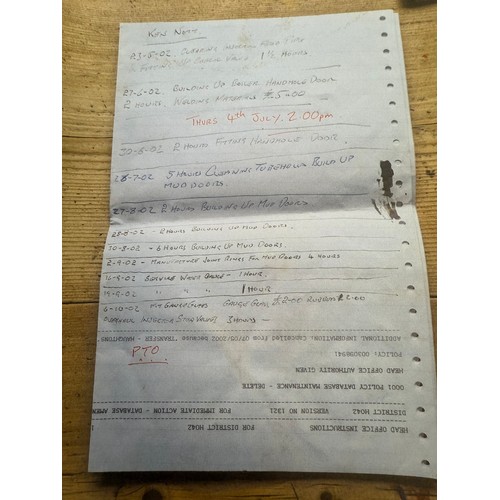 KEN NOTT
23-5-02. CLEANING INTERNAL
1½ HOURS
27-5-02. BUILDING UP BOILER HANDHOLE DOOR
2 HOURS. WELDING MATERIALS £5.00
THURS 4th JULY. 2.00pm
30-5-02 2 HOURS FITTING HANDHOLE DOOR.
28-7-02 5 HOURS CLEANING TUBEHOLES BUILD UP
MUD DOORS.
27-8-02 2 HOURS BUILDING UP MUD DOORS
28-8-02 - 2 HOURS BUILDING UP MUD DOORS.
30-8-02 - 6 HOURS BUILDING UP MUD DOORS.
2-9-02 - MANUFACTURE JOINT RINGS FOR MUD DOORS 4 HOURS
16-9-02 SERVICE WATER GAUGE - 1 HOUR.
19-9-02 " " " 1 HOUR
6-10-02 GAUGE GLASS £2.00 RUBBERS £2.00
3 HOURS -
P.T.O.
ADDITIONAL INFORMATION: Cancelled from 07/05/2002 because TRANSFER - HAU
POLICY: 003098941
HEAD OFFICE AUTHORITY GIVEN
0001 POLICY DATABASE MAINTENANCE - DELETE
DISTRICT HO42 VERSION NO 1321 FOR IMMEDIATE ACTION - DATABASE AMEN
HEAD OFFICE INSTRUCTIONS FOR DISTRICT HO42 1